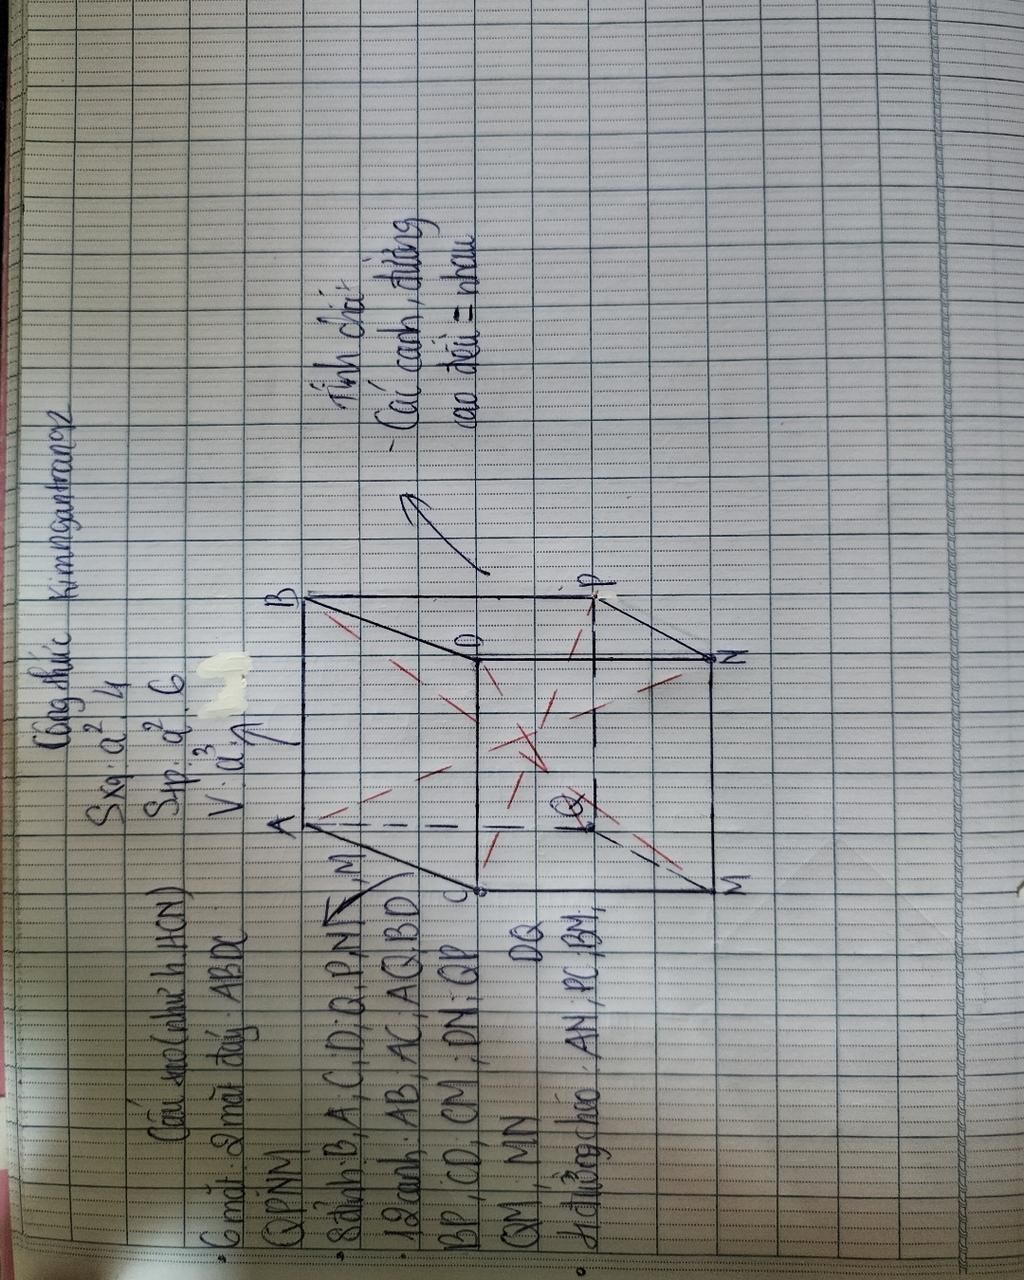 Công thức kimngantrangz
Sxq: a². 4
Stp: a². 6
V: a³
Cấu tạo (như h.HCN)
• 6 mặt: 2 mặt đáy: ABDC
QPNM
• 8 đỉnh: B, A, C, D, Q, P, N, M
• 12 cạnh: AB; AC; AQ; BD
BP, CD, CM; DN; QP
QM, MN
• 4 đường chéo: AN; PC; BM;
DQ
Tính chất
- Các cạnh, đường
cao đều = nhau
A
B
C
D
Q
P
M
N